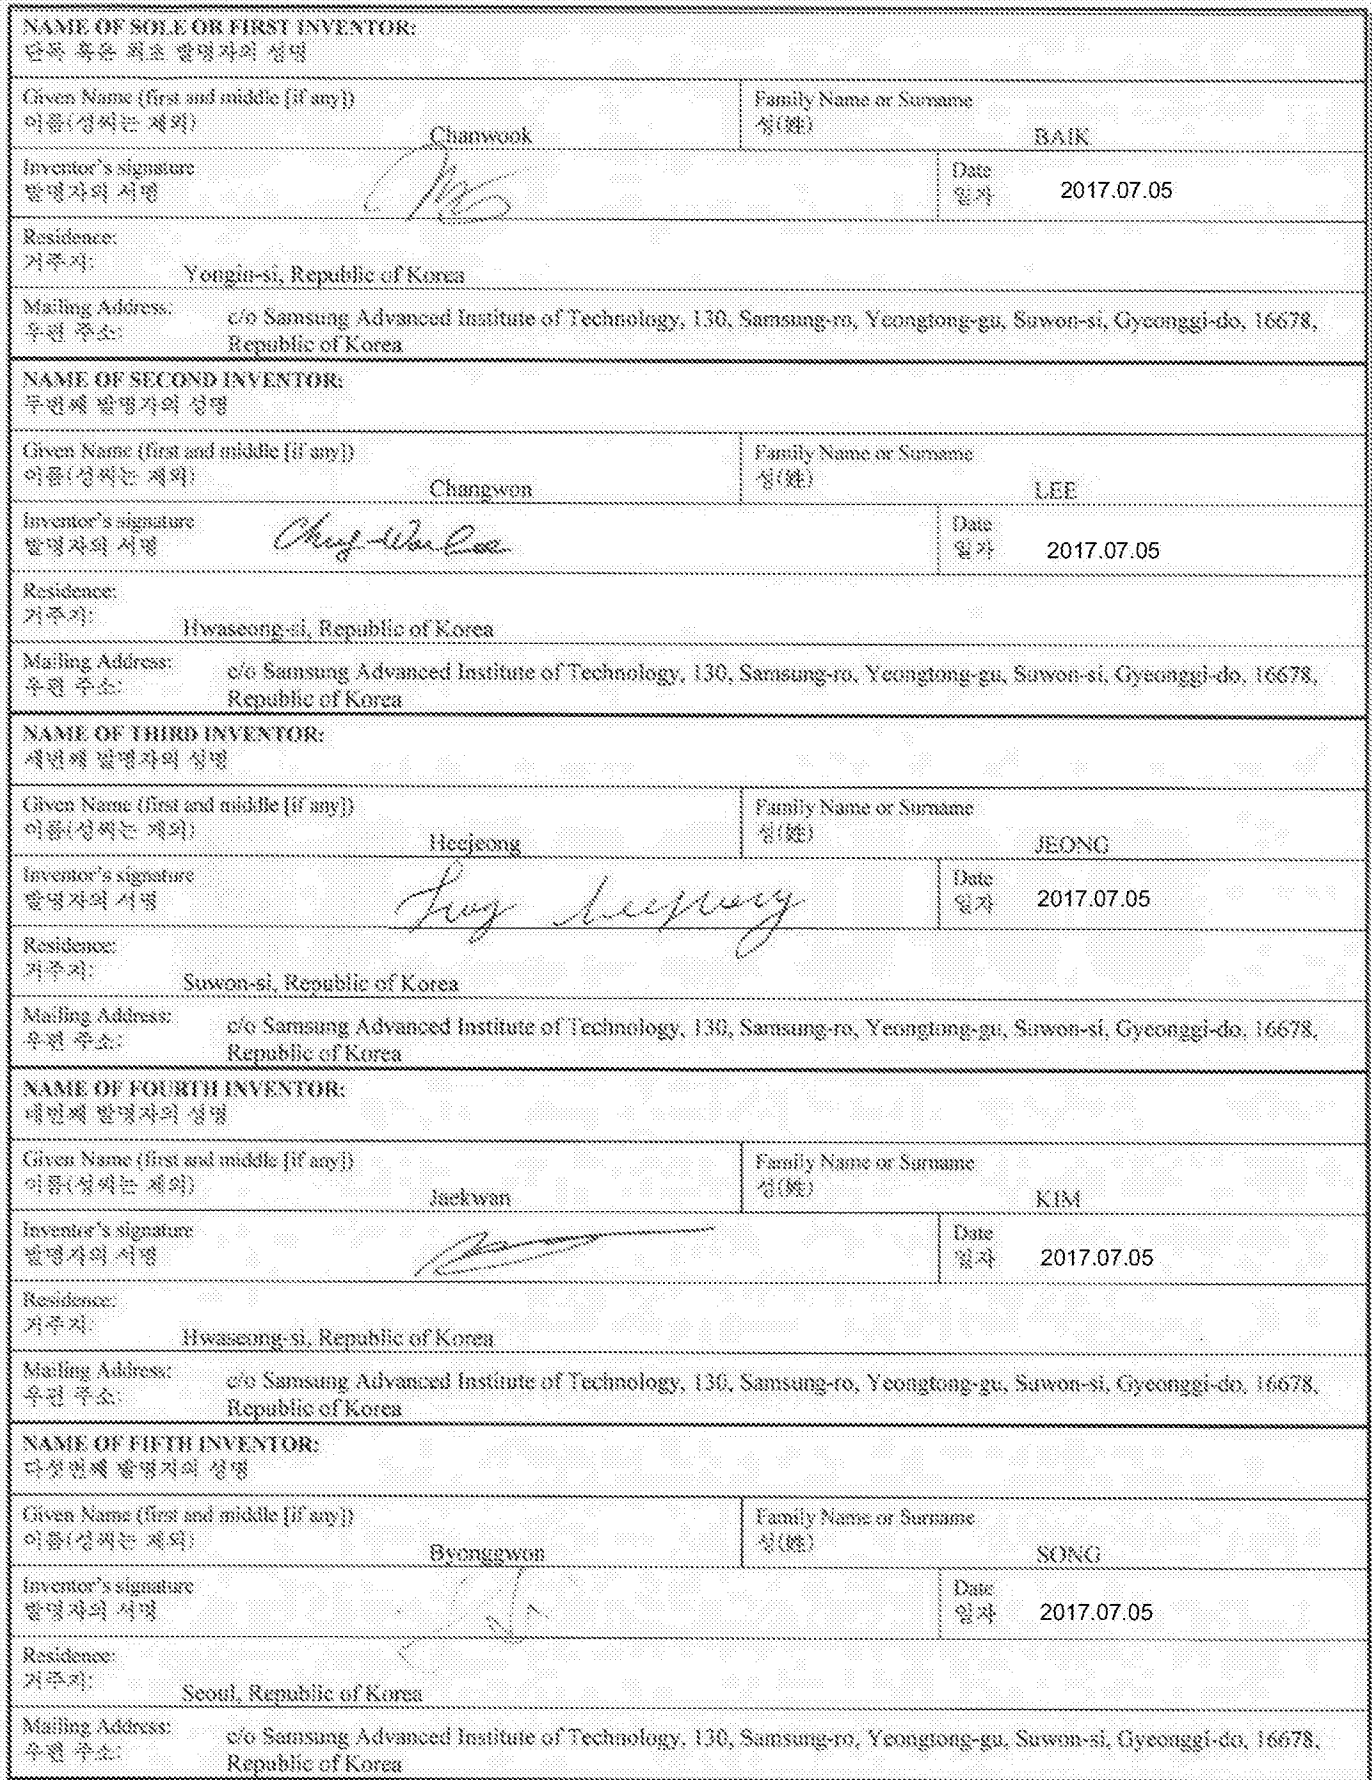 NAME OF SOLE OR FIRST INVENTOR:
단독 혹은 최초 발명자의 성명
Given Name (first and middle [if any])
이름(성씨는 제외)
Chanwook
Family Name or Surname
성(姓)
BAIK
Inventor's signature
발명자의 서명
Date
일자
2017.07.05
Residence:
거주지:
Yongin-si, Republic of Korea
Mailing Address:
우편 주소:
c/o Samsung Advanced Institute of Technology, 130, Samsung-ro, Yeongtong-gu, Suwon-si, Gyeonggi-do, 16678,
Republic of Korea
NAME OF SECOND INVENTOR:
두번째 발명자의 성명
Given Name (first and middle [if any])
이름(성씨는 제외)
Changwon
Family Name or Surname
성(姓)
LEE
Inventor's signature
발명자의 서명
Date
일자
2017.07.05
Residence:
거주지:
Hwaseong-si, Republic of Korea
Mailing Address:
우편 주소:
c/o Samsung Advanced Institute of Technology, 130, Samsung-ro, Yeongtong-gu, Suwon-si, Gyeonggi-do, 16678,
Republic of Korea
NAME OF THIRD INVENTOR:
세번째 발명자의 성명
Given Name (first and middle [if any])
이름(성씨는 제외)
Heejeong
Family Name or Surname
성(姓)
JEONG
Inventor's signature
발명자의 서명
Date
일자
2017.07.05
Residence:
거주지:
Suwon-si, Republic of Korea
Mailing Address:
우편 주소:
c/o Samsung Advanced Institute of Technology, 130, Samsung-ro, Yeongtong-gu, Suwon-si, Gyeonggi-do, 16678,
Republic of Korea
NAME OF FOURTH INVENTOR:
네번째 발명자의 성명
Given Name (first and middle [if any])
이름(성씨는 제외)
Jaekwan
Family Name or Surname
성(姓)
KIM
Inventor's signature
발명자의 서명
Date
일자
2017.07.05
Residence:
거주지:
Hwaseong-si, Republic of Korea
Mailing Address:
우편 주소:
c/o Samsung Advanced Institute of Technology, 130, Samsung-ro, Yeongtong-gu, Suwon-si, Gyeonggi-do, 16678,
Republic of Korea
NAME OF FIFTH INVENTOR:
다섯번째 발명자의 성명
Given Name (first and middle [if any])
이름(성씨는 제외)
Byonggwon
Family Name or Surname
성(姓)
SONG
Inventor's signature
발명자의 서명
Date
일자
2017.07.05
Residence:
거주지:
Seoul, Republic of Korea
Mailing Address:
우편 주소:
c/o Samsung Advanced Institute of Technology, 130, Samsung-ro, Yeongtong-gu, Suwon-si, Gyeonggi-do, 16678,
Republic of Korea